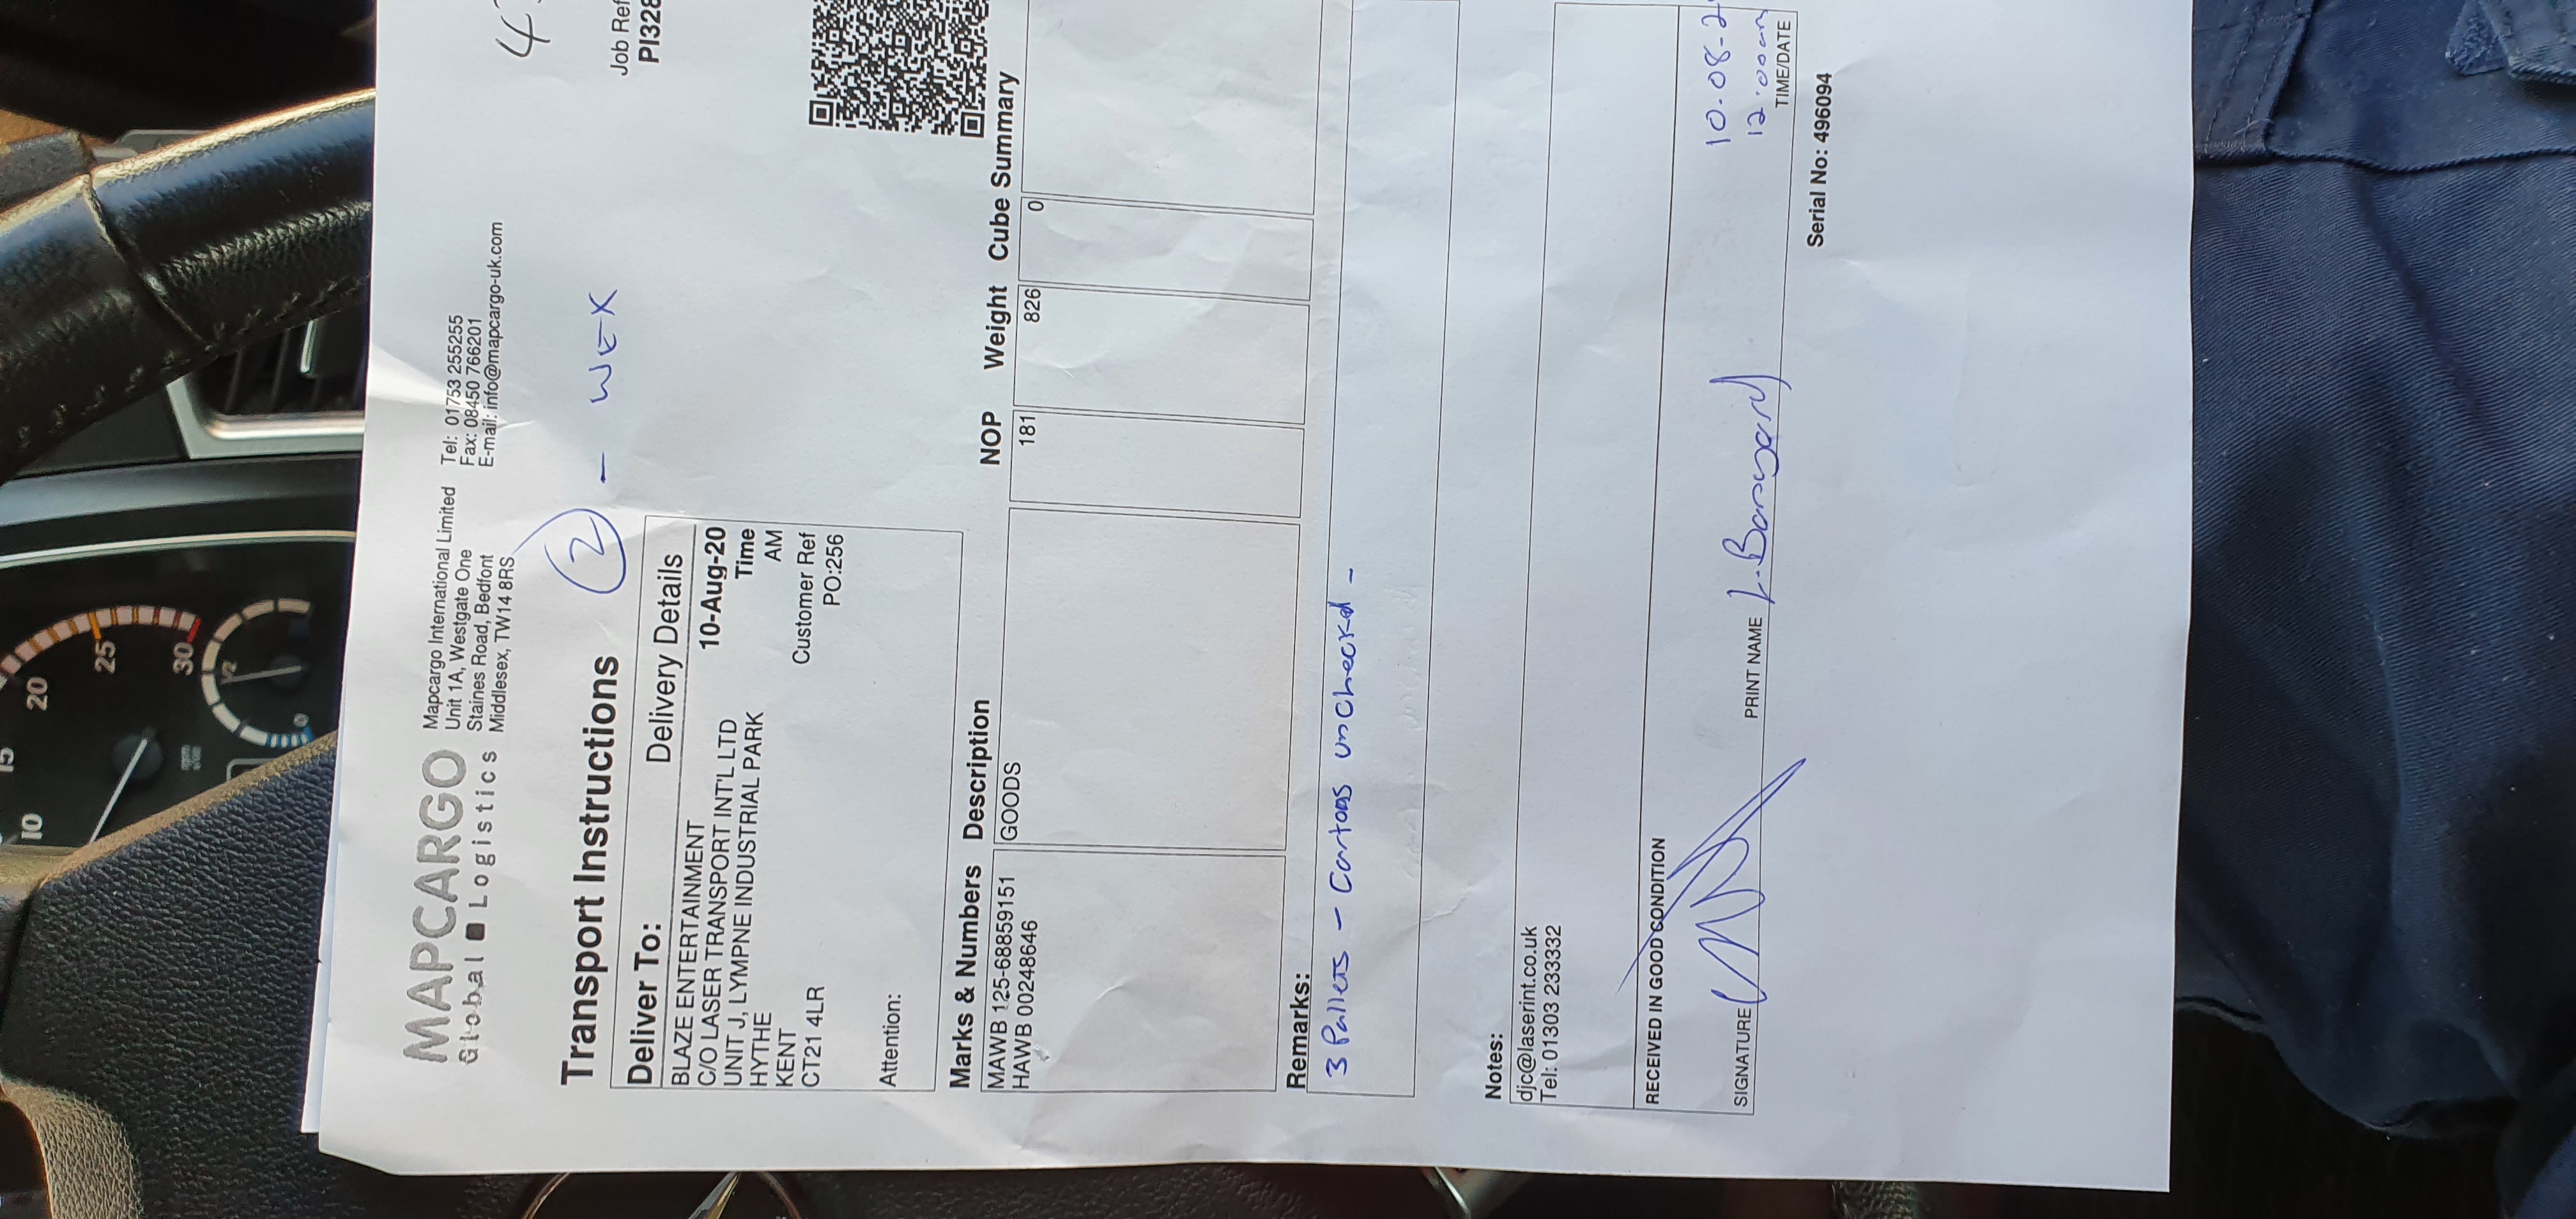 15
10
20
25
30
1/2
0
MAPCARGO
Global Logistics
Mapcargo International Limited
Unit 1A, Westgate One
Staines Road, Bedfont
Middlesex, TW14 8RS
Tel: 01753 255255
Fax: 08450 766201
E-mail: info@mapcargo-uk.com
4
Transport Instructions
2 - WEX
Job Ref
PI328
Deliver To:
Delivery Details
BLAZE ENTERTAINMENT
C/O LASER TRANSPORT INT'L LTD
UNIT J, LYMPNE INDUSTRIAL PARK
HYTHE
KENT
CT21 4LR
10-Aug-20
Time
AM
Customer Ref
PO:256
Attention:
Marks & Numbers Description NOP Weight Cube Summary
MAWB 125-68859151 GOODS 181 826 0
HAWB 00248646
Remarks:
3 Pallets - Cartons unchecked -
Notes:
djc@laserint.co.uk
Tel: 01303 233332
RECEIVED IN GOOD CONDITION
SIGNATURE
PRINT NAME
10.08.2
12.00am
TIME/DATE
Serial No: 496094